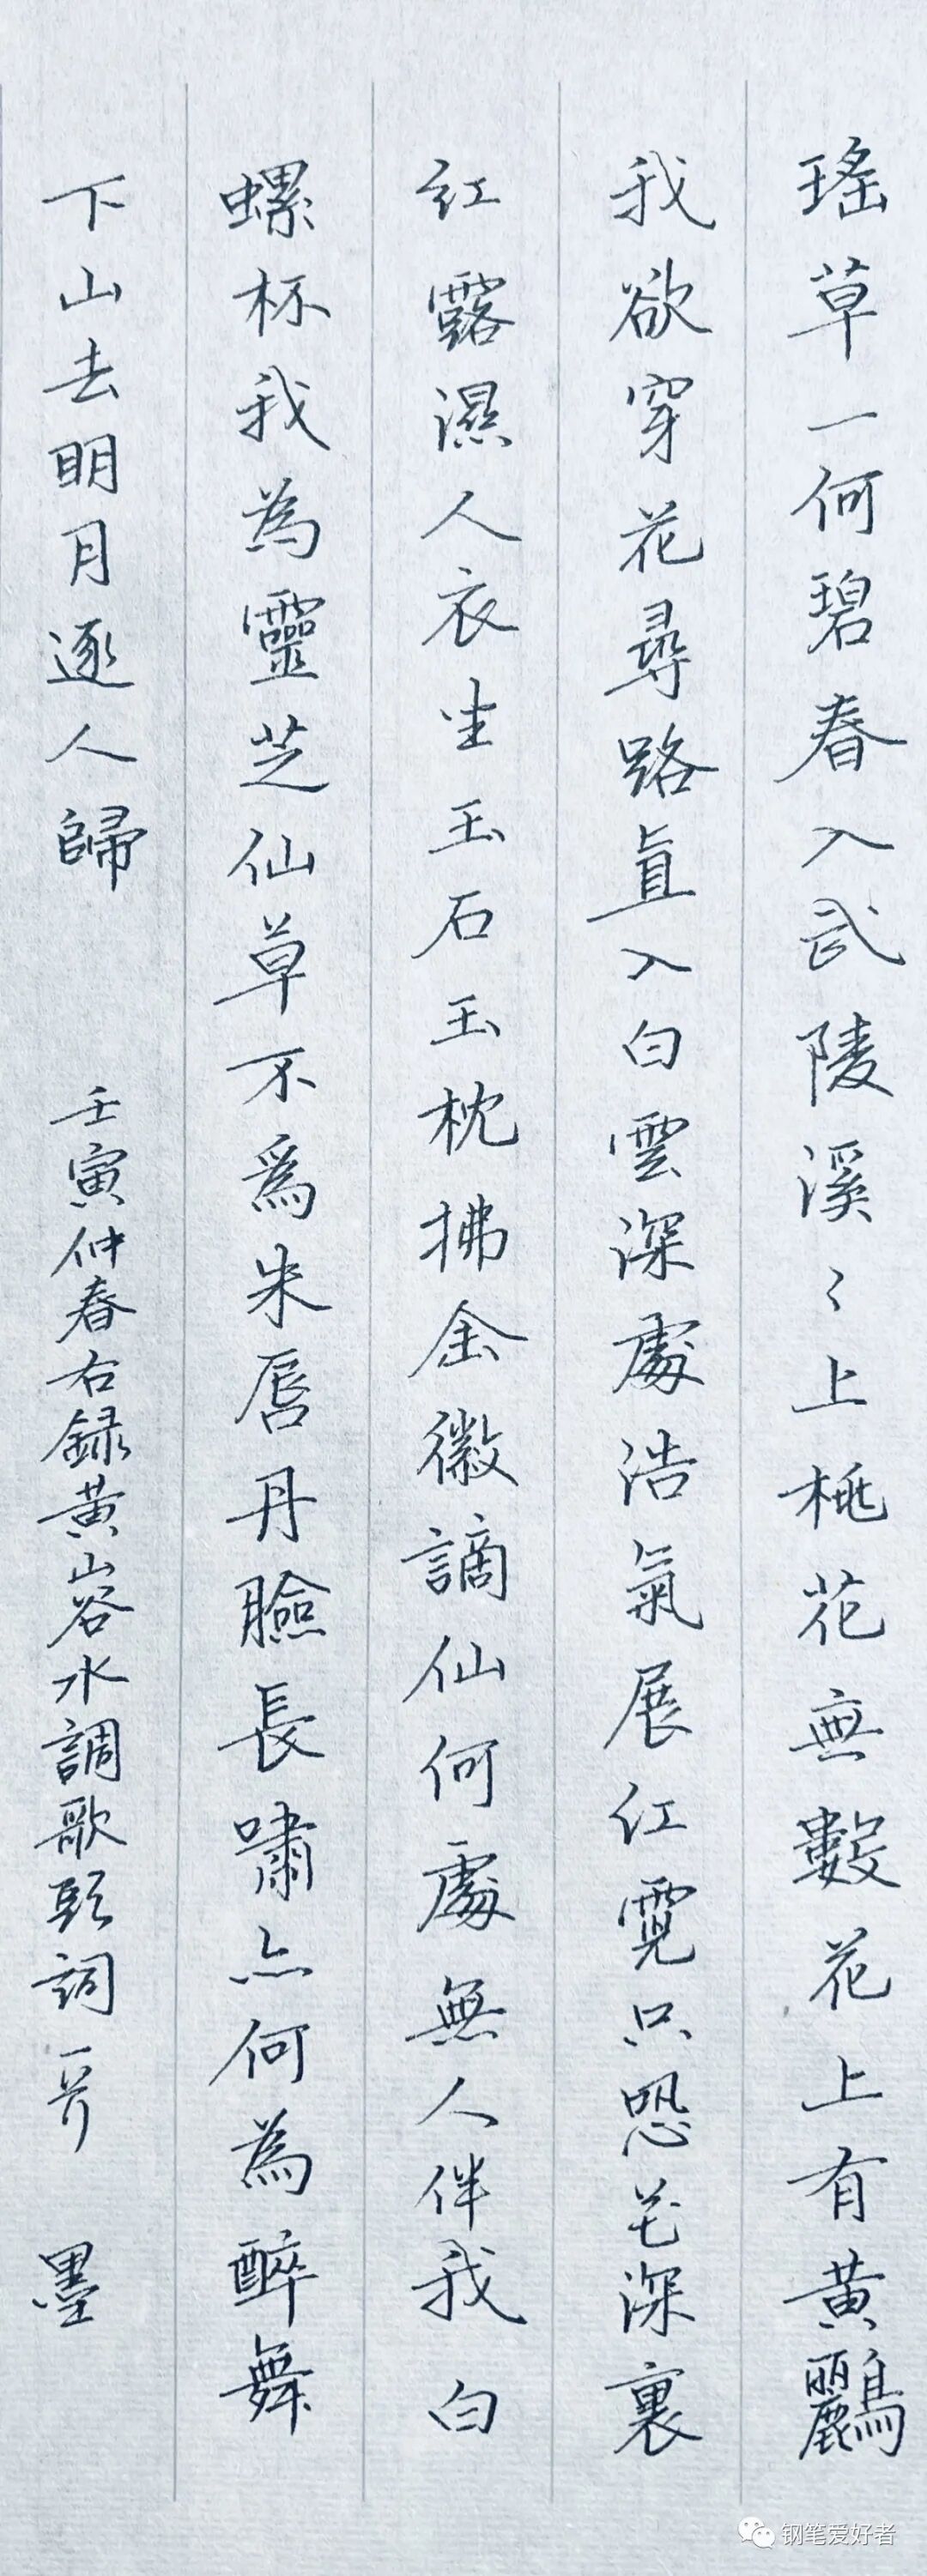 瑤草一何碧春入武陵溪〻上桃花無數花上有黄鸝
我欲穿花尋路直入白雲深處浩氣展紅霓只恐花深裏
紅露濕人衣坐玉石玉枕拂金徽謫仙何處無人伴我白
螺杯我為靈芝仙草不為朱唇丹臉長嘯亦何為醉舞
下山去明月逐人歸
壬寅仲春右録黄山谷水調歌頭詞 墨
钢笔爱好者